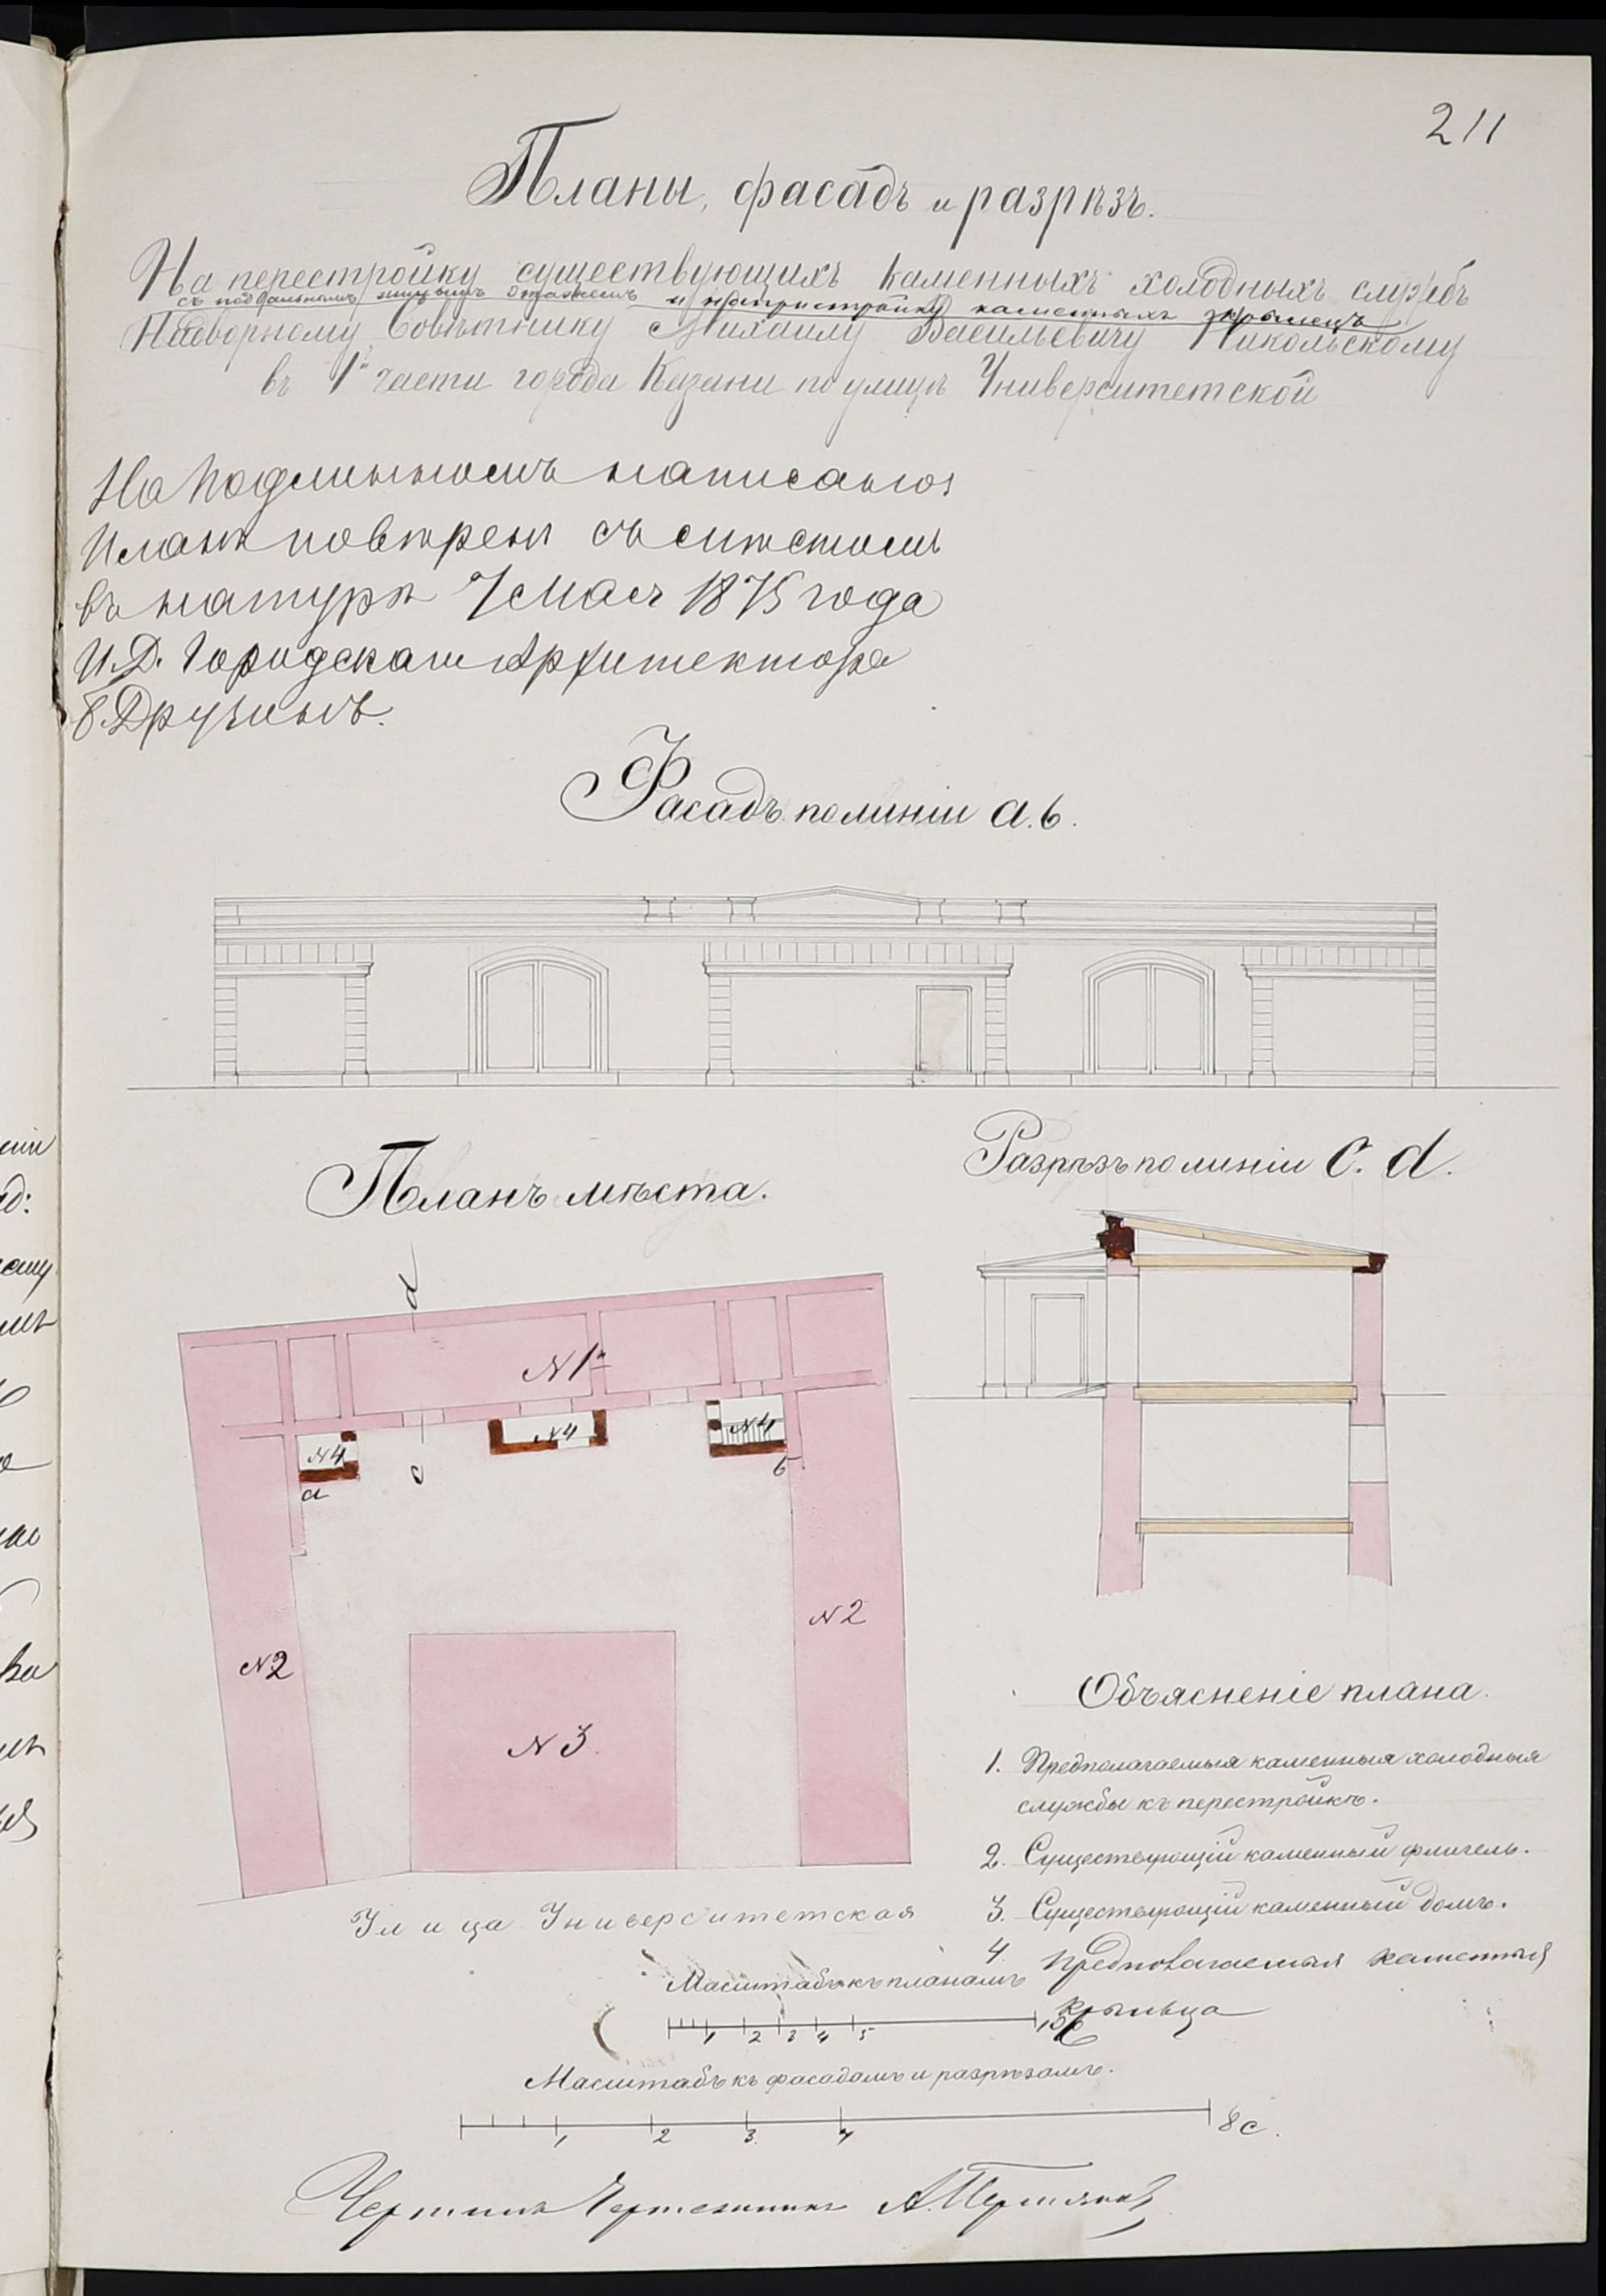 211
Планы, фасадъ и разрѣзъ.
На перестройку существующихъ каменныхъ холодныхъ службъ
съ подвальнымъ жилымъ этажемъ и пристройку каменныхъ крылецъ
Надворному Совѣтнику Михаилу Васильевичу Никольскому
въ 1й части города Казани по улицѣ Университетской
На подлинномъ написано:
Планъ повѣренъ съ мѣстомъ
въ натурѣ 7 мая 1875 года
И.Д. Городскаго Архитектора
Фасадъ по линіи а.b.
Планъ мѣста.
Разрѣзъ по линіи с. d.
d
N 1й
N4
N4
N4
a
c
b
N2
N2
N 3.
Улица Университетская
Объясненіе плана.
1. Предполагаемыя каменныя холодныя
службы къ перестройкѣ.
2. Существующій каменный флигель.
3. Существующій каменный домъ.
4. Предполагаемыя каменныя
крыльца
Масштабъ къ планамъ
1 2 3 4 5
Масштабъ къ фасадамъ и разрѣзамъ.
1 2 3 4 8 с.
Чертилъ Чертежникъ